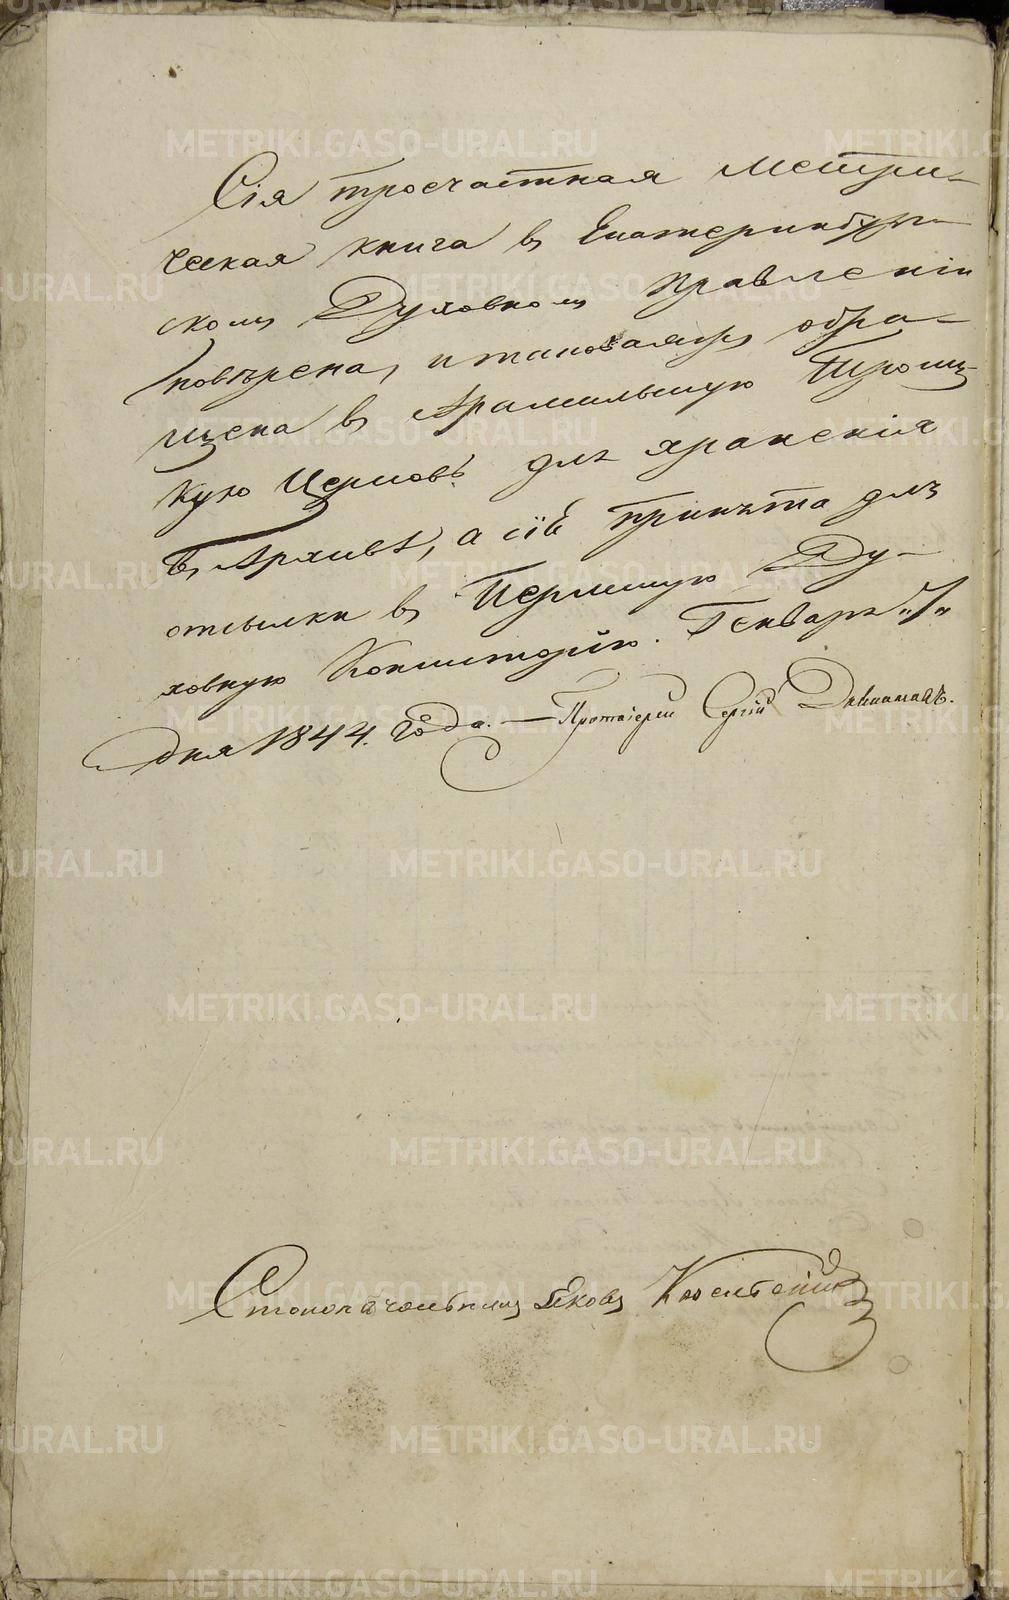 Сія троечастная Метри-
ческая книга въ Екатеринбург-
скомъ Духовномъ Правленіи
повѣрена, и таковаяжъ обра-
щена въ Арамильскую Троиц-
кую Церковь для храненія
въ Архивѣ, а сія принята для
отсылки въ Пермскую Ду-
ховную Консисторію. Генваря „7„
дня 1844. года. — Протоіерей Сергій
Столоначальникъ Яковъ
METRIKI.GASO-URAL.RU